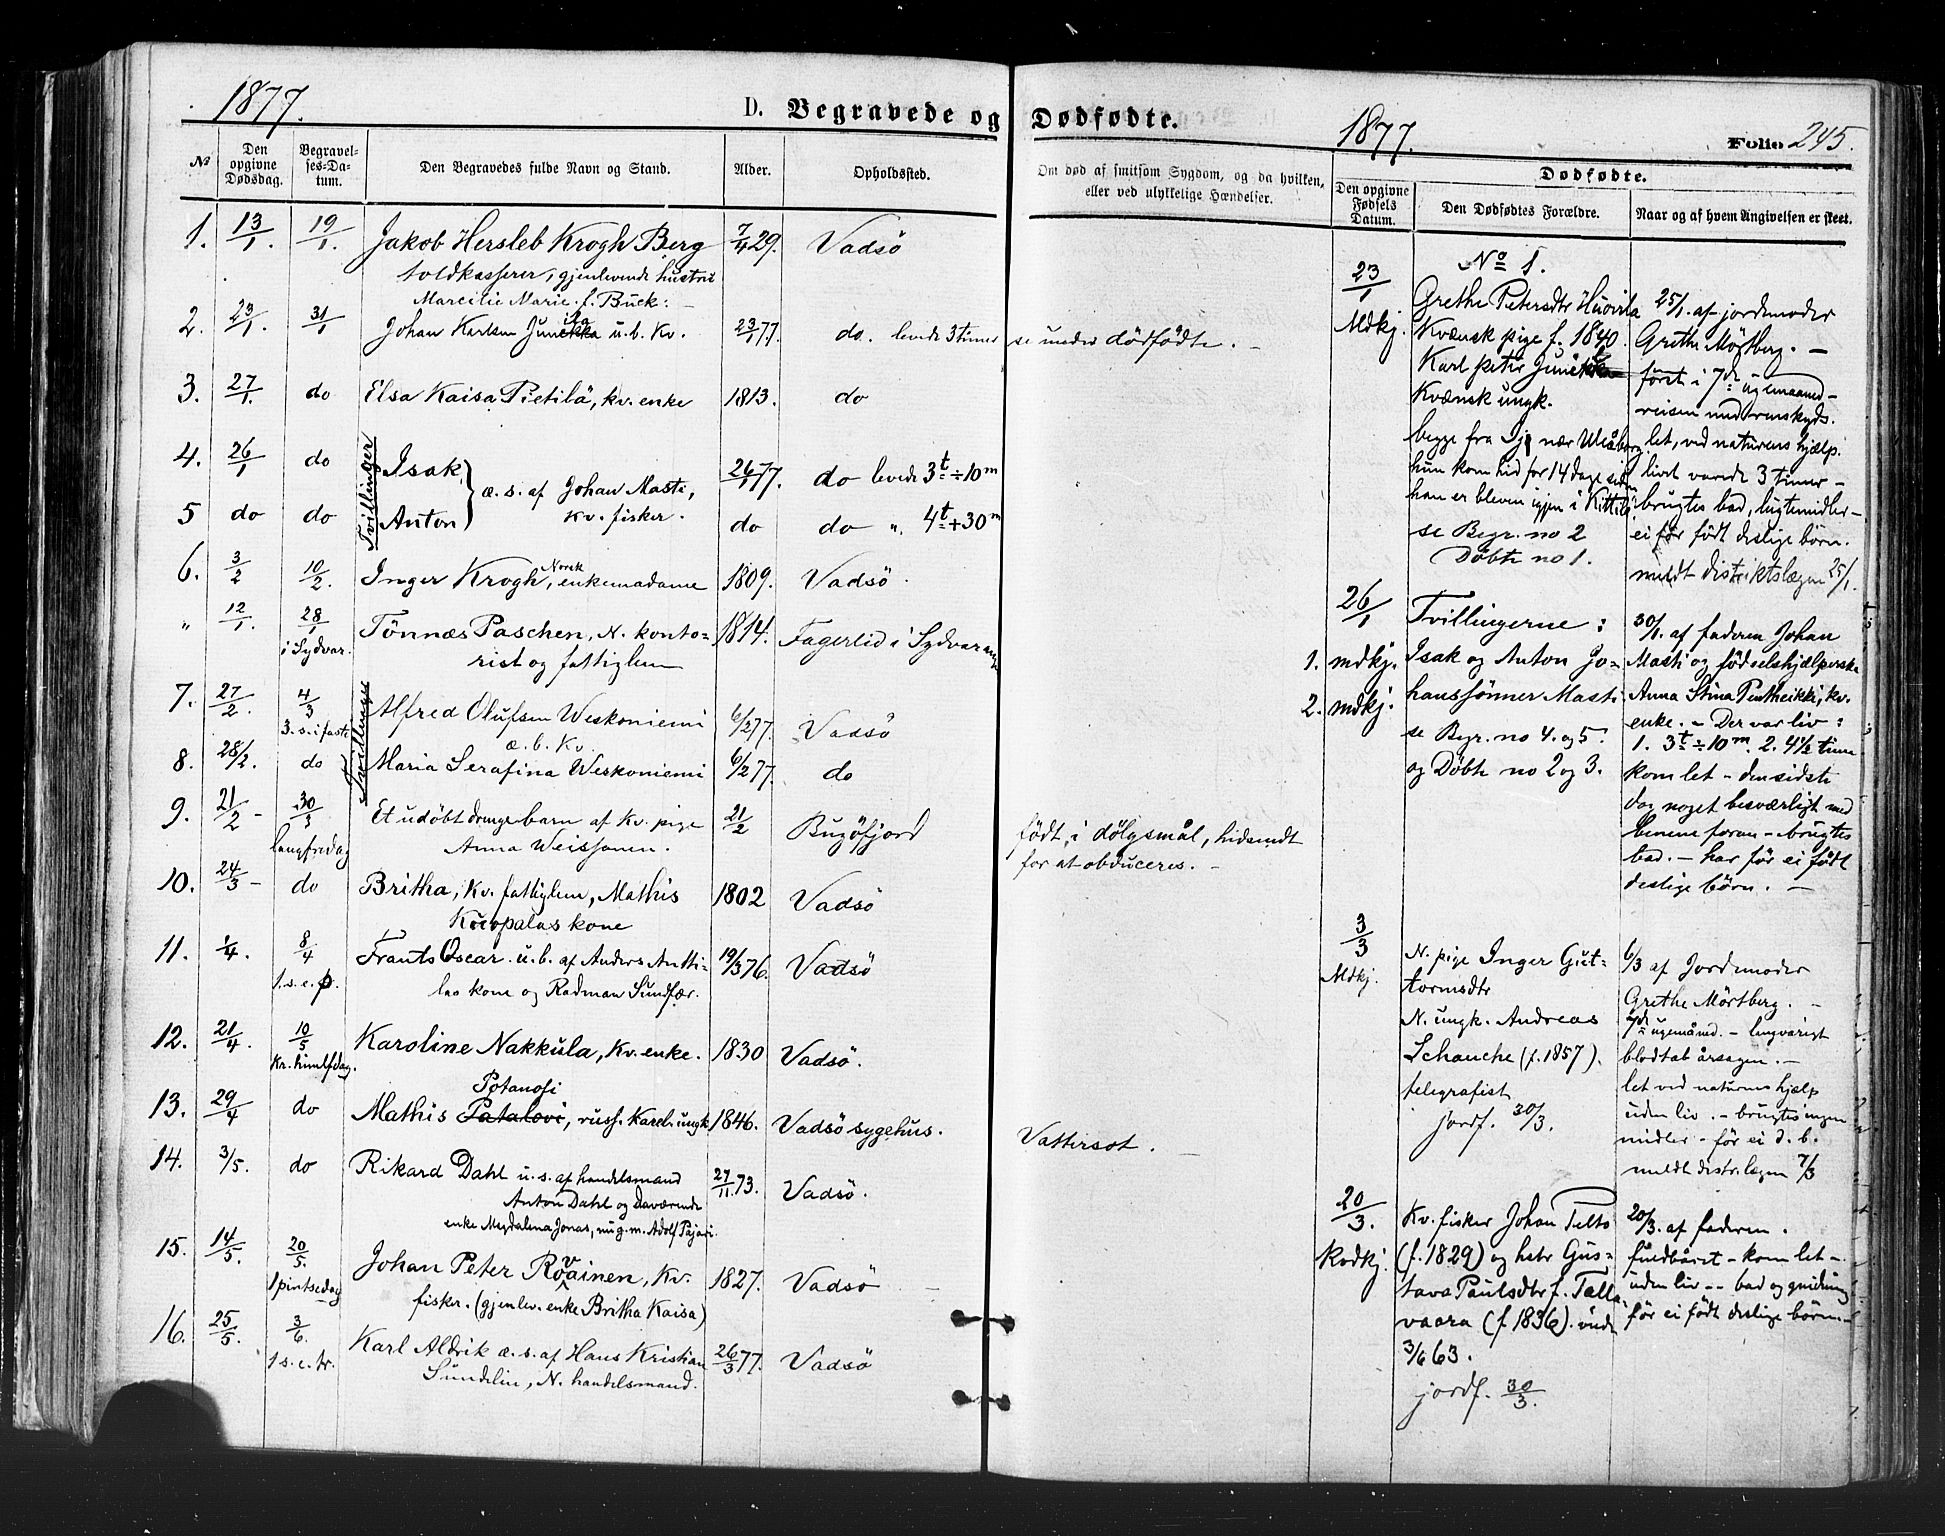 1877.
D. Begravede og
№
Den opgivne Dødsdag.
Begravelses-Datum.
Den Begravedes fulde Navn og Stand.
Alder.
Opholdssted.
1. 13/1. 19/1. Jakob Hersleb Krogh Berg 7/4 29. Vadsö
toldkasserer, gjenlevende hustru
Marcilie Marie f. Buck: –
2. 23/1. 31/1 Johan Karlsen Junekka u. b. Kv. 23/1 77. do. levede 3 timer
3. 27/1. do Elsa Kaisa Pietilä, kv. enke 1813. do
Tvillinger
4. 26/1 do Isak 26/1 77. do levede 3t ÷ 10m
æ. s. af Johan Masti,
kv. fisker.
5 do do Anton do do „ 4t + 30m
6. 3/2 10/2. Inger Krogh, Norsk enkemadame 1809. Vadsö.
„ 12/1. 28/1 i Sydvar. Tönnæs Paschen, N. konto- 1814. Fagerlid i Sydvaranger
rist og fattiglem
Tvillinger
7. 27/2. 4/3 3. s. i faste Alfred Olufsen Weskoniemi 6/2 77. Vadsö
æ. b. Kv.
8. 28/2. do Maria Serafina Weskoniemi 6/2 77. do
9. 21/2 – 30/3 langfredag Et udöbt drengebarn af Kv. pige 21/2 Bugöfjord
Anna Weissanen.
10. 24/3 – do Britha, Kv. fattiglem, Mathis 1802 Vadsö
Kuopalas kone
11. 1/4. 8/4 1. s. e. p. Frants Oscar u. b. af Anders Antti- 19/3 76. Vadsö
las kone og Radman Sundfær.
12. 21/4. 10/5 Kr. himlfdag. Karoline Nakkula, Kv. enke. 1830 Vadsö.
Potanofi
13. 29/4 do Mathis Patalovi, russ. Karel. ungk. 1846. Vadsö sygehus.
14. 3/5. do Rikard Dahl u. s. af handelsmand 27/11. 73. Vadsö.
Anton Dahl og Daværende
enke Magdalena Jonas, nu g. m. Adolf Pajari.
15. 14/5. 20/5. 1 pintsedag Johan Peter Rovainen, Kv. 1827. Vadsö
fisker. (gjenlev. enke Britha Kaisa)
16. 25/5. 3/6. 1 s. e. tr. Karl Aldrik æ. s. af Hans Kristian 26/3 77. Vadsö
Sundelin, N. handelsmand.
Dødfødte.
1877.
Folio 245.
Om død af smitsom Sygdom, og da hvilken,
eller ved ulykkelige Hændelser.
Dødfødte.
Den opgivne Fødsels Datum.
Den Dødfødtes Forældre.
Naar og af hvem Angivelsen er skeet.
se under dödfödte. –
födt i dölgsmål, hidsendt
for at obduceres. –
Vattersot. –
No 1.
23/1
Mdkj.
Grethe Petersdtr Huovila
Kvænsk pige f. 1840.
Karl peter
Kvænsk ungk.
begge fra Ijo nær Uleåborg
hun kom hid for 14 dage siden
han er bleven igjen i Kittilä
se Begr. no 2
Döbte no 1.
25/1. af jordemoder
Grethe Mörtberg. –
först i 7de ugemaaned –
reisen med renskyds.
let, ved naturens hjælp.
livet varede 3 timer –
brugtes bad, lugtemidler –
ei för födt deslige börn.
meldt distriktslægen 25/1.
26/1
1. mdkj.
2. mdkj.
Tvillingerne:
Isak og Anton Jo-
hanssönner Masti
se Begr. no 4. og 5.
og Döbte no 2 og 3.
30/1. af faderen Johan
Masti og födselshjælperske
Anna Stina Pentheikki, kv.
enke. – Der var liv:
1. 3t ÷ 10m. 2. 4½ time
kom let – den sidste
dog noget besværligt med
benene foran – brugtes
bad. – har för ei födt
deslige börn. –
3/3
Mdkj.
N. pige Inger Gut-
tormsdtr
N. ungk. Andreas
Schanche (f. 1857).
telegrafist
jordf. 30/3.
6/3 af Jordemoder
Grethe Mörtberg. –
7de ugemånd. – langvarigt
blodtab årsagen. –
let ved naturens hjælp
uden liv. – brugtes ingen
midler – för ei d. b.
meldt distr. lægen 7/3
20/3.
Kvdkj.
Kv. fisker Johan Telts
(f. 1829) og hstr Gus-
tava Paulsdtr f. Talla
vaara (f. 1836).
3/6 63.
jordf. 30/3.
20/3. af faderen.
fuldbåret – kom let –
uden liv – bad og gnidning
för ei födt deslige börn –